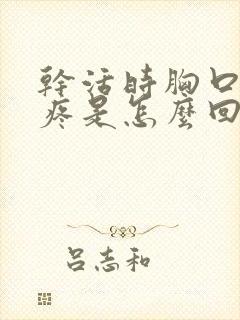 幹活時胸口
疼是怎麼回
吕志和